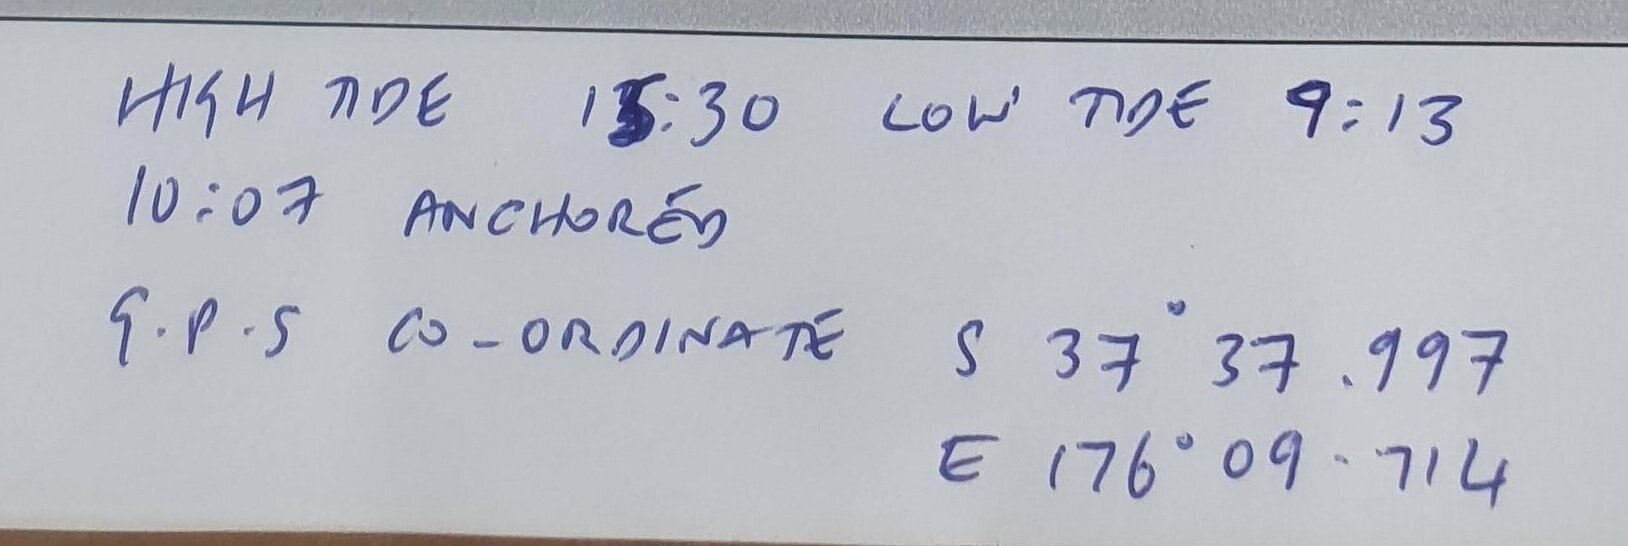 HIGH TIDE 15:30 LOW TIDE 9:13
10:07 ANCHORED
G.P.S CO-ORDINATE S 37° 37.997
E 176° 09.714